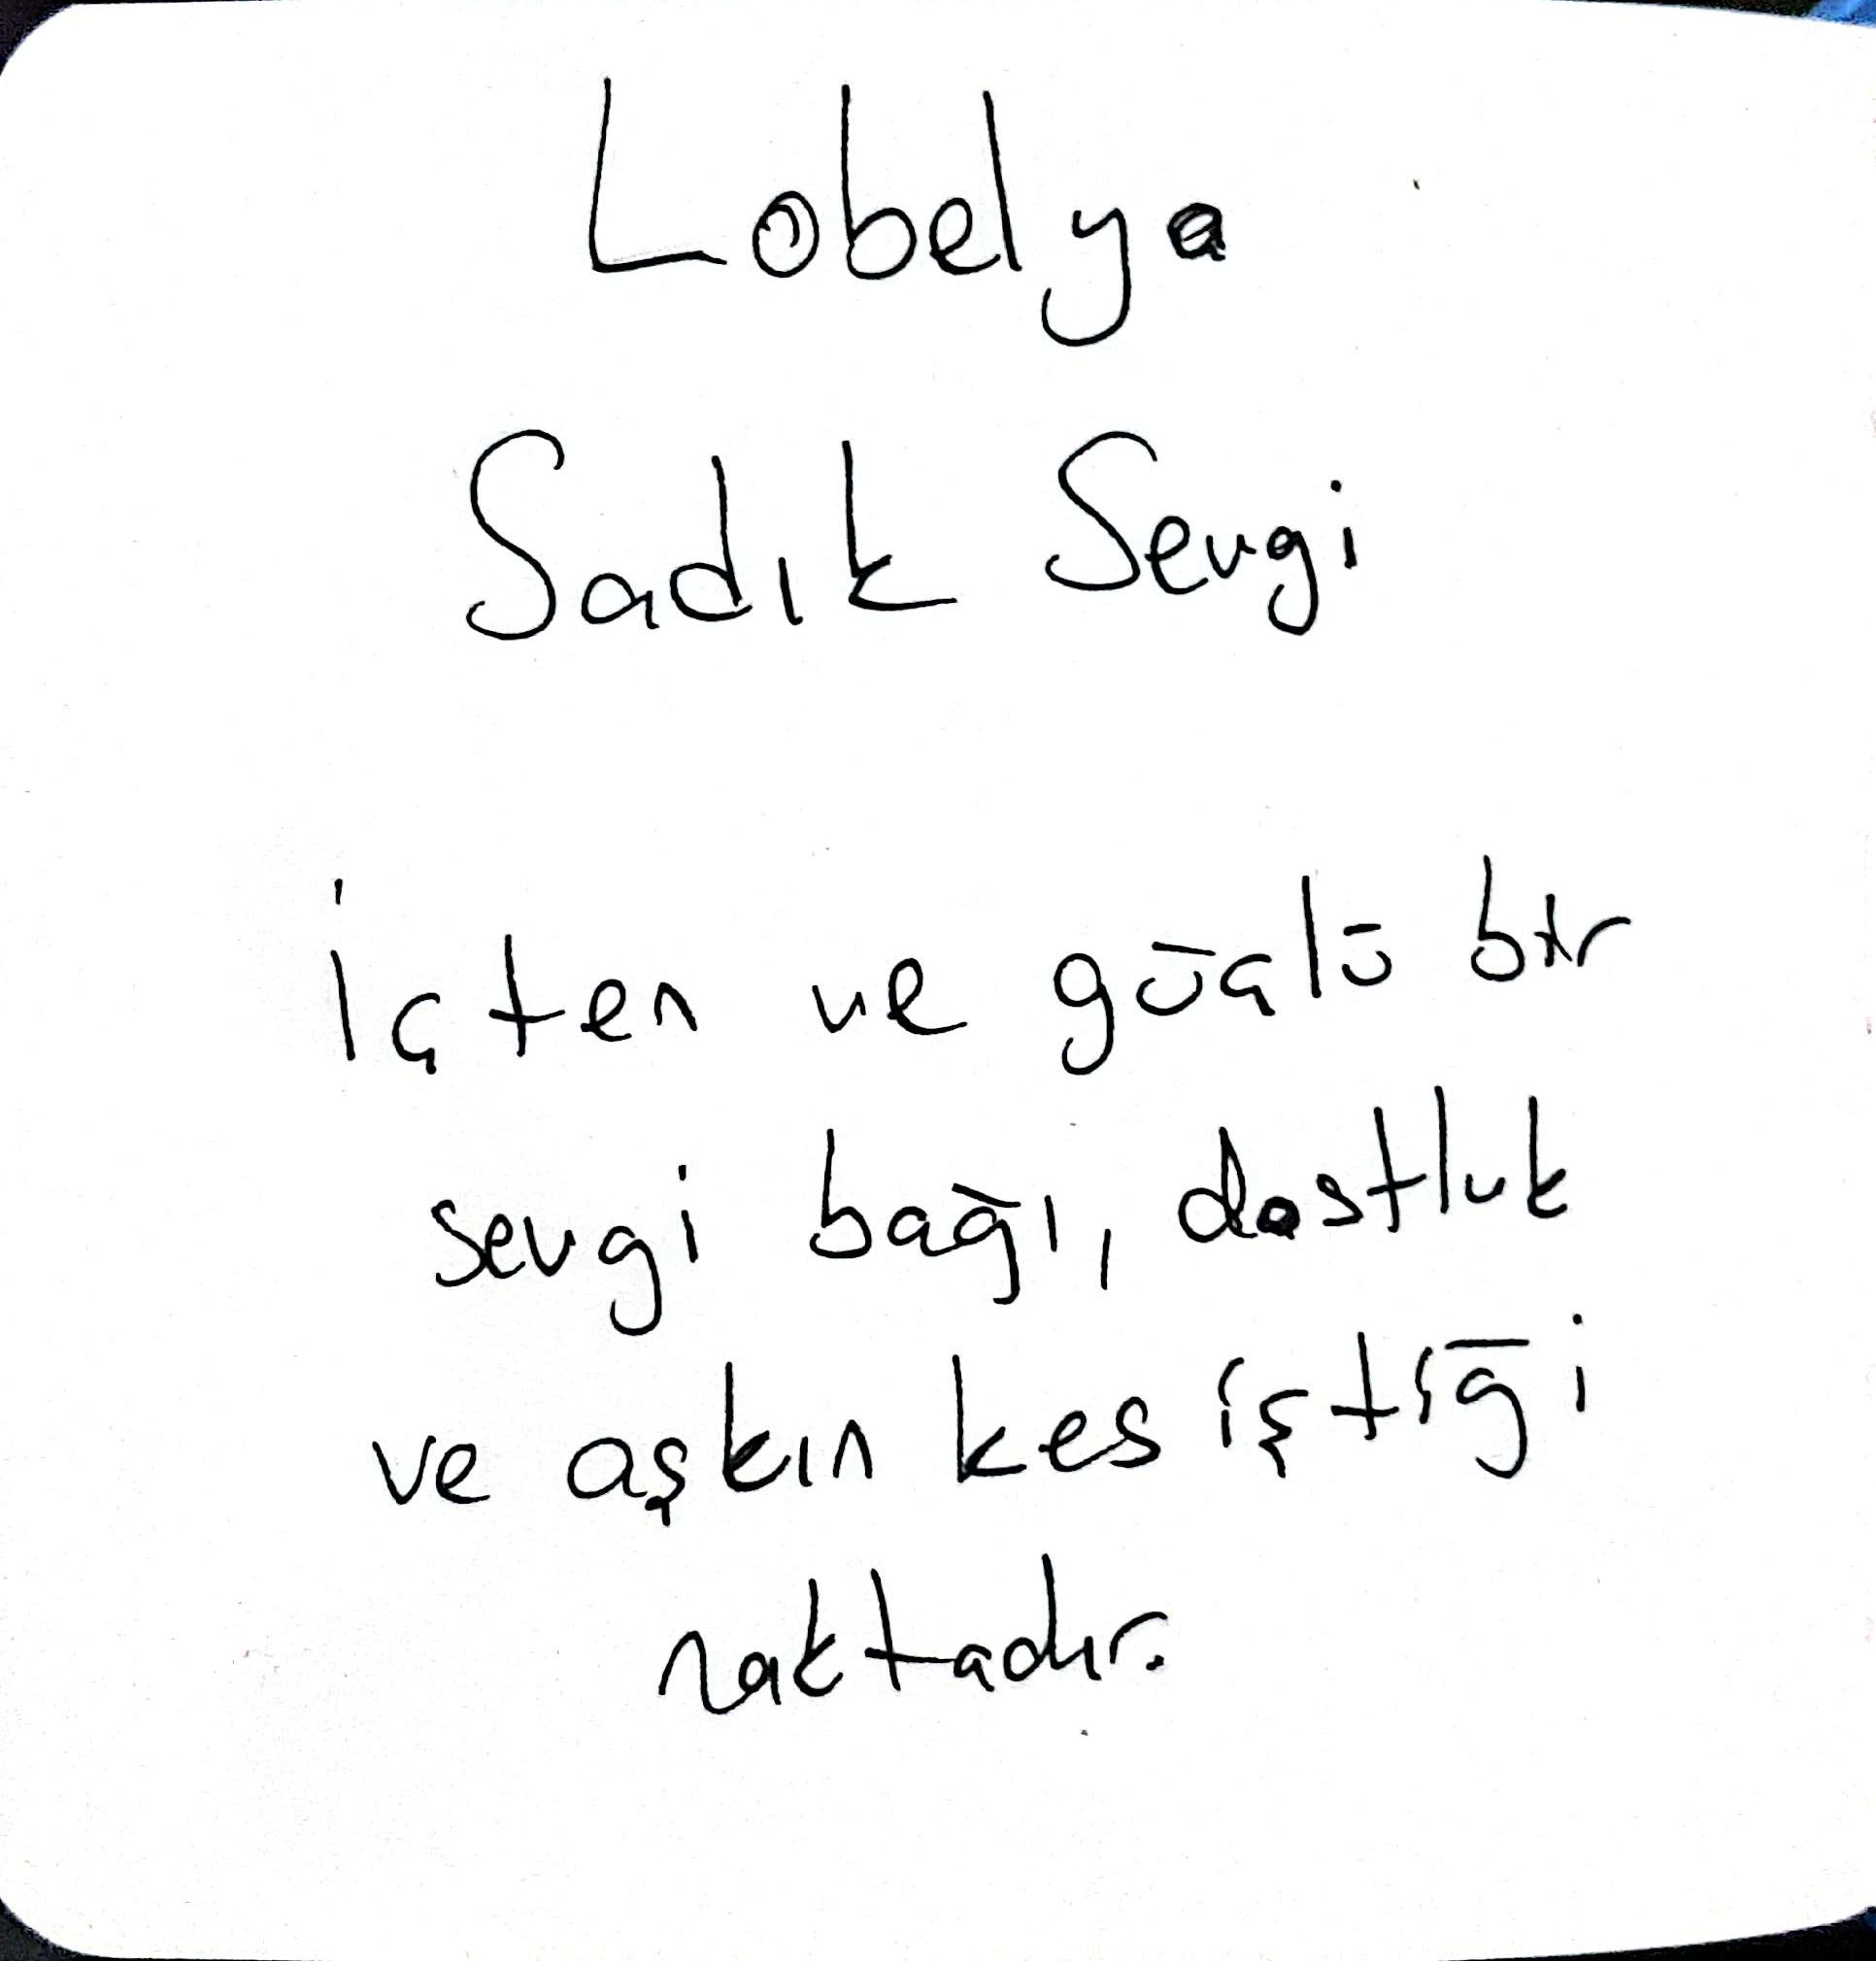 Lobelya
Sadık Sevgi
İçten ve güçlü bir
sevgi bağı, dostluk
ve aşkın kesiştiği
naktadır.